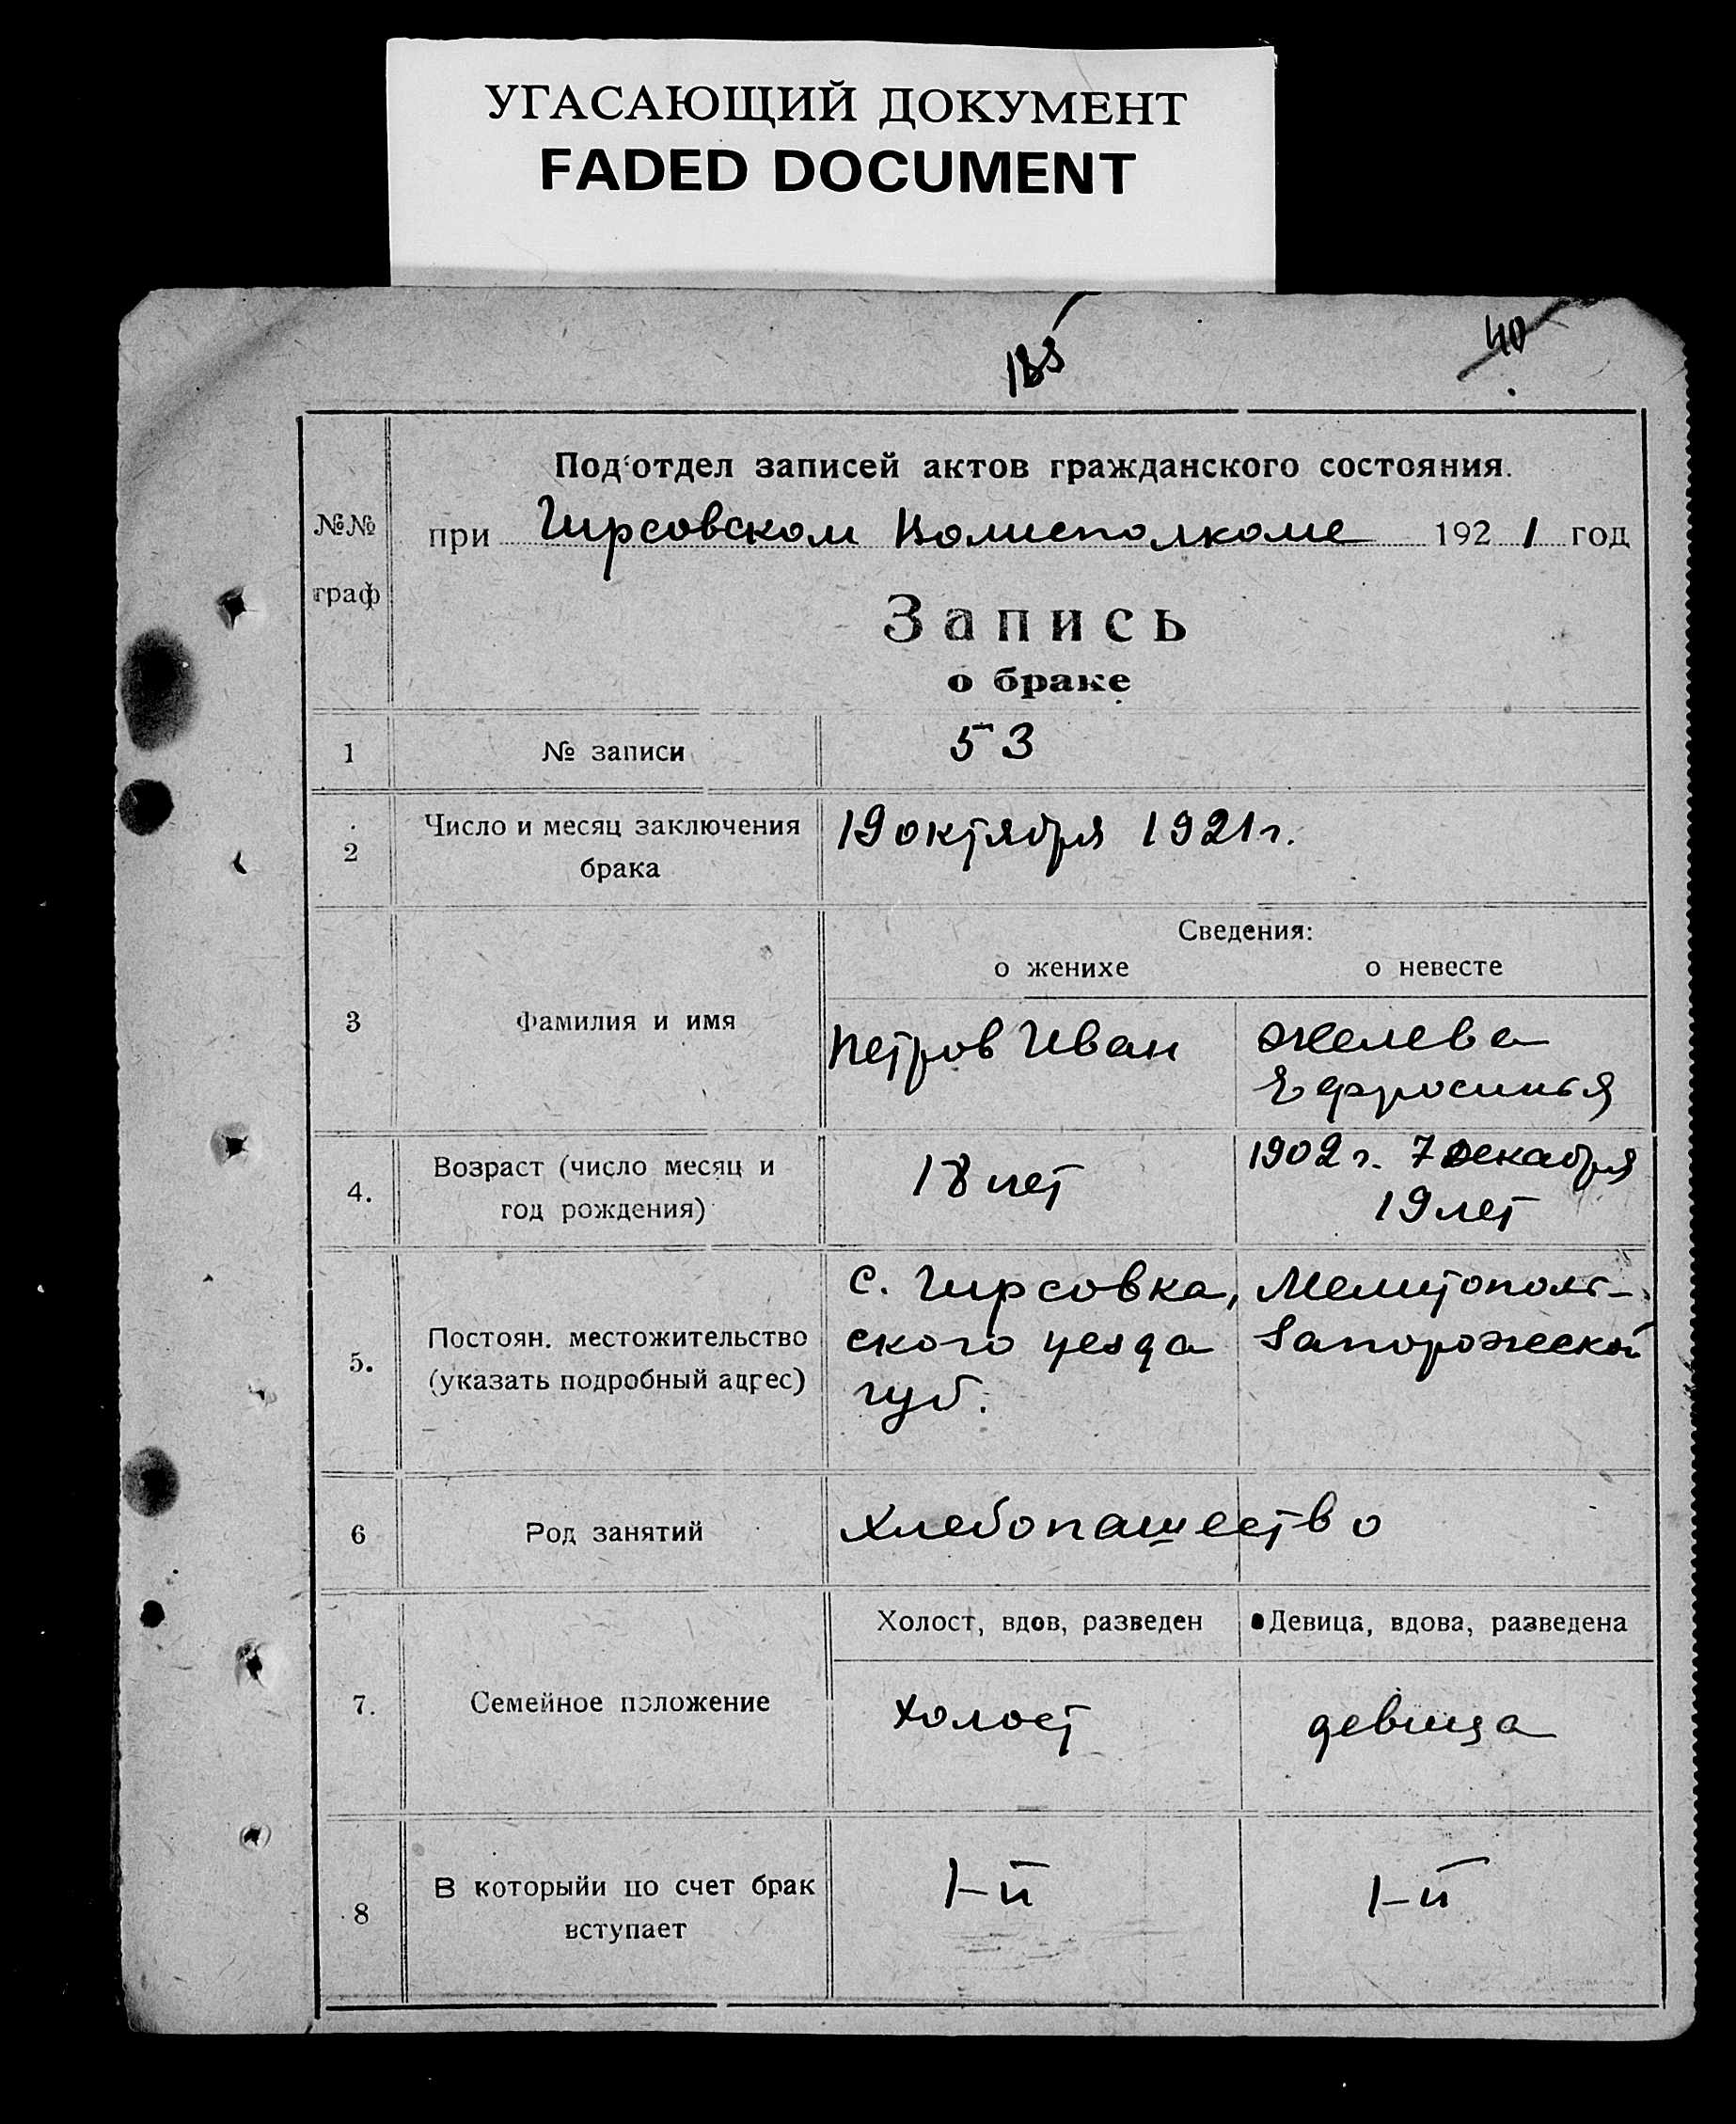 УГАСАЮЩИЙ ДОКУМЕНТ
FADED DOCUMENT
40
Подотдел записей актов гражданского состояния.
№№ граф
при Гирсовском Волисполкоме 1921 год
Запись
о браке
1 № записи 53
2 Число и месяц заключения брака 19 октября 1921 г.
Сведения:
о женихе о невесте
3 Фамилия и имя Петров Иван Желева Ефросинья
4. Возраст (число месяц и год рождения) 18 лет 1902 г. 7 декабря 19 лет
5. Постоян. местожительство (указать подробный адрес) с. Гирсовка, Мелитополь-
ского уезда Запорожской
губ.
6 Род занятий Хлебопашество
Холост, вдов, разведен Девица, вдова, разведена
7. Семейное положение холост девица
8 В которыйи по счет брак вступает 1-й 1-й